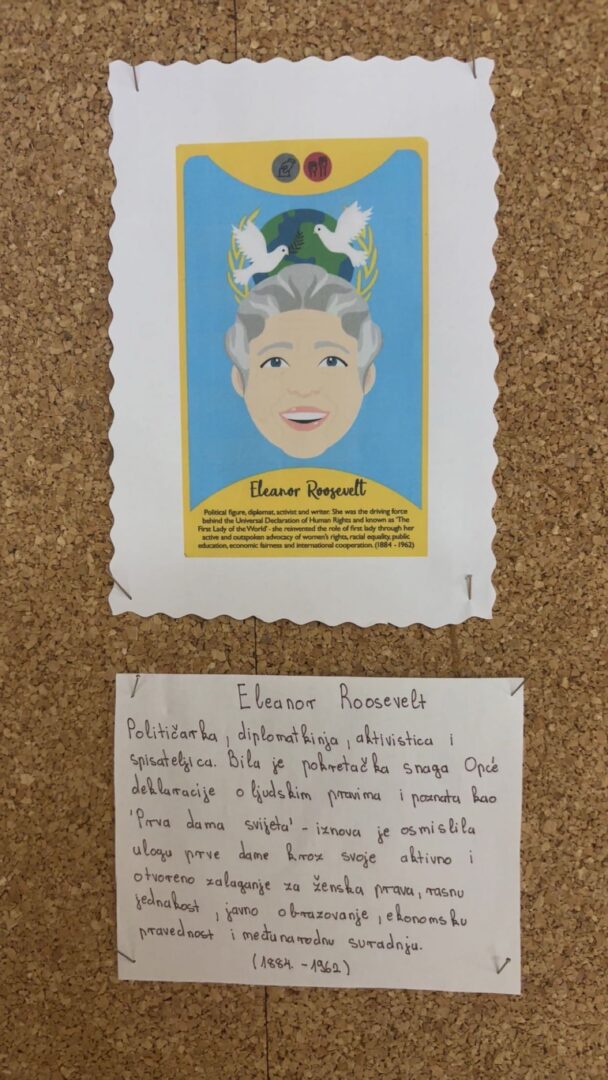 Eleanor Roosevelt
Political figure, diplomat, activist and writer. She was the driving force
behind the Universal Declaration of Human Rights and known as 'The
First Lady of the World' - she reinvented the role of first lady through her
active and outspoken advocacy of women's rights, racial equality, public
education, economic fairness and international cooperation. (1884 - 1962)
Eleanor Roosevelt
Političarka, diplomatkinja, aktivistica i
spisateljica. Bila je pokretačka snaga Opće
deklaracije o ljudskim pravima i poznata kao
'Prva dama svijeta' - iznova je osmislila
ulogu prve dame kroz svoje aktivno i
otvoreno zalaganje za ženska prava, rasnu
jednakost, javno obrazovanje, ekonomsku
pravednost i međunarodnu suradnju.
(1884. - 1962)